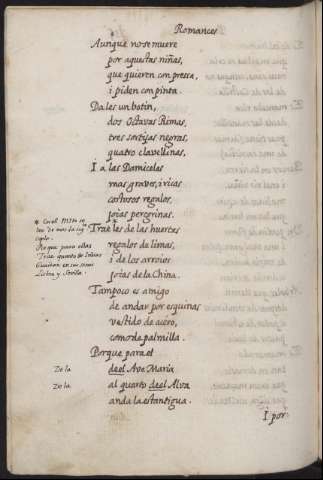 Romances
Aunque no se muere
por aquestas niñas,
que quieren con pressa,
i piden con pinta.
Dales un botin,
dos Octavas Rimas,
tres sortijas negras,
quatro clavellinas,
I a las Damicelas
mas graves, i ricas
costosos regalos,
joias peregrinas.
Traeles de las huertas
regalos de limas,
i de los arroios
joias de la China.
Tampoco es amigo
de andar por esquinas
vestido de acero,
como de palmilla.
Porque para el
de el Ave Maria
al quarto de el Alva
anda la estantigua.
I por
* En el MS. de
copla.
No que para ellas
Trae quanto de Indias
Lisboa, y Sevilla.
De la
De la